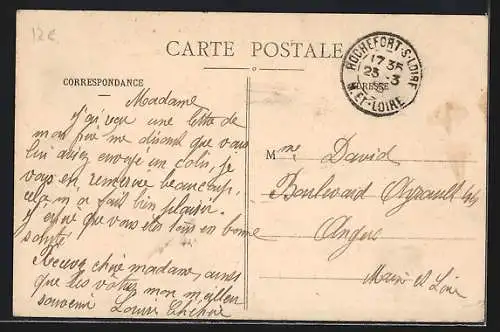 12€
CARTE POSTALE
CORRESPONDANCE
ADRESSE
ROCHEFORT-S-LOIRE
17 35
23 -3
M.-ET-LOIRE
Madame
J'ai reçu une lettre de
mon père me disant que vous
lui aviez envoyé un colis, je
vous en remercie beaucoup.
cela m'a fait bien plaisir.
J'espère que vous êtes tous en bonne
santé!
Recevez chère madame, ainsi
que les vôtres mon meilleur
souvenir Louis
Mme David
Boulevard Ayrault
Angers
Maine et Loire